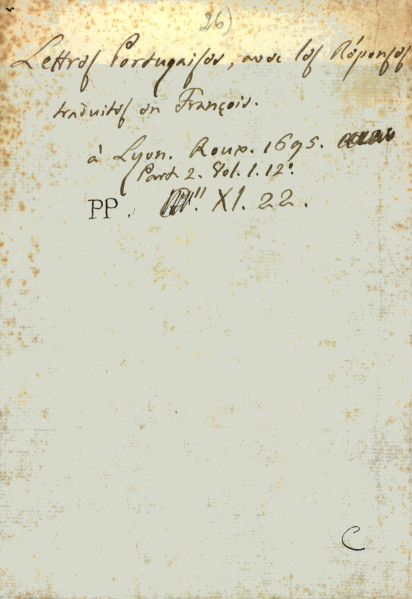 26)
Lettres Portugaises, avec les Réponses
traduites en François.
à Lyon. Roux. 1695.
Part. 2. Vol. 1. 12º
PP. XI. 22.
C